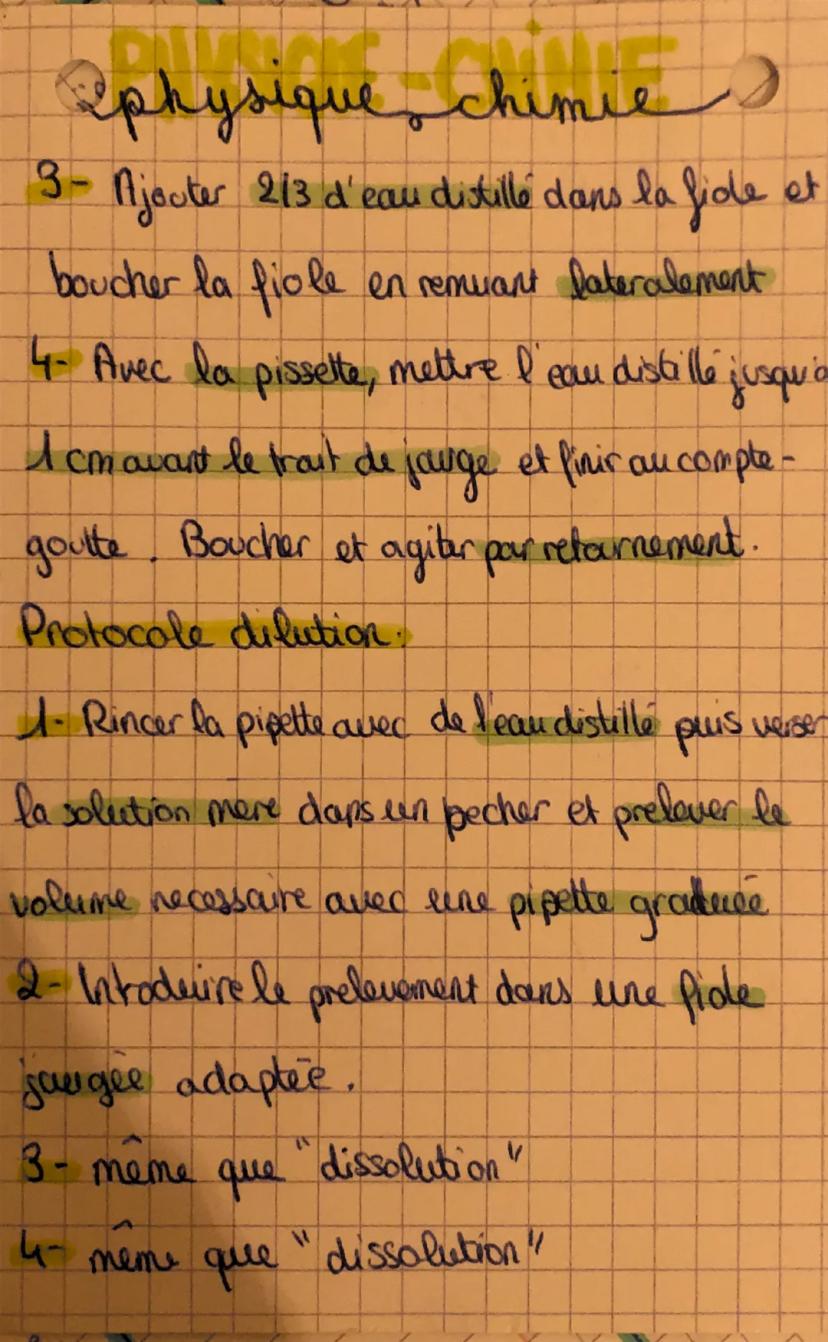 PHYSIQUE-CHIMIE
physique-chimie
3- Ajouter 2/3 d'eau distillé dans la fiole et
boucher la fiole en remuant lateralement
4- Avec la pissette, mettre l'eau distillé jusqu'à
1 cm avant le trait de jauge et finir au compte-
goutte. Boucher et agiter par retournement.
Protocole dilution:
1- Rincer la pipette avec de l'eau distillé puis verser
la solution mère dans un becher et prelever le
volume necessaire avec une pipette graduée
2- Introduire le prelevement dans une fiole
jaugée adaptée.
3- même que "dissolution"
4- même que "dissolution"